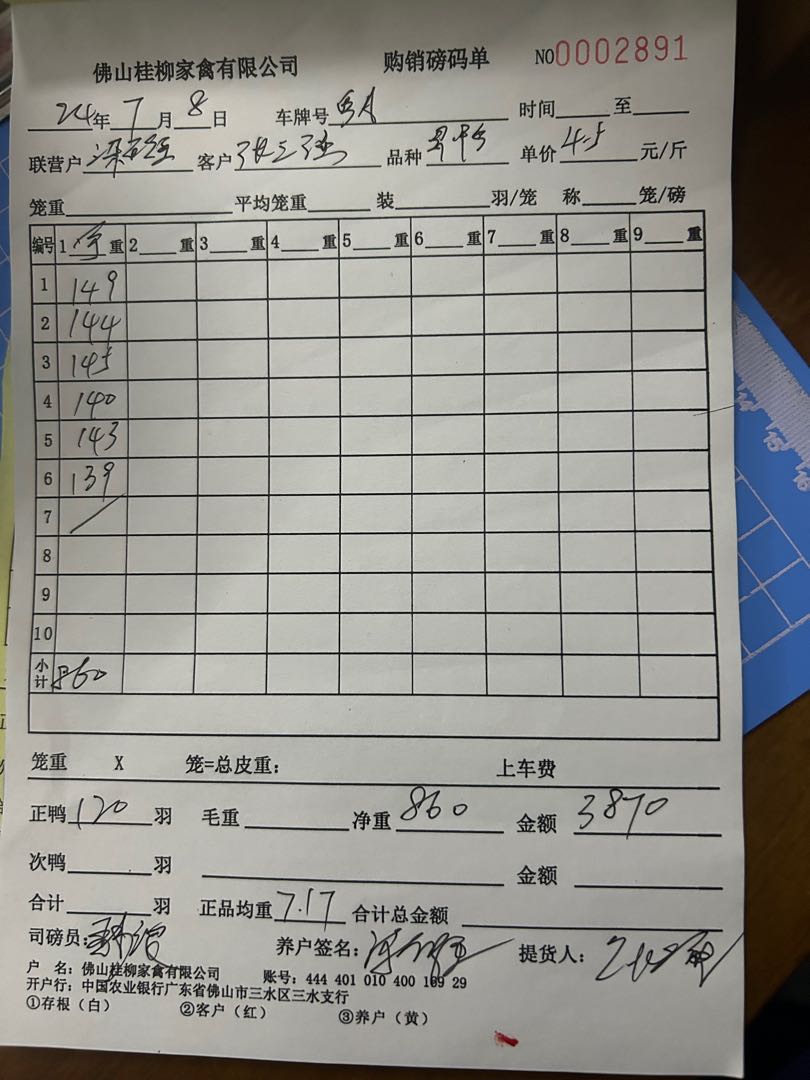 佛山桂柳家禽有限公司 购销磅码单 NO0002891
24年7月8日 车牌号 时间 至
联营户 客户 品种 单价4.5元/斤
笼重 平均笼重 装 羽/笼 称 笼/磅
编号 1 重 2 重 3 重 4 重 5 重 6 重 7 重 8 重 9 重
1 149
2 144
3 145
4 140
5 143
6 139
7 /
8
9
10
小计 860
笼重 X 笼=总皮重: 上车费
正鸭120羽 毛重 净重860 金额3870
次鸭 羽 金额
合计 羽 正品均重7.17 合计总金额
司磅员: 养户签名: 提货人:
户 名: 佛山桂柳家禽有限公司 账号: 444 401 010 400 169 29
开户行: 中国农业银行广东省佛山市三水区三水支行
①存根(白) ②客户(红) ③养户(黄)